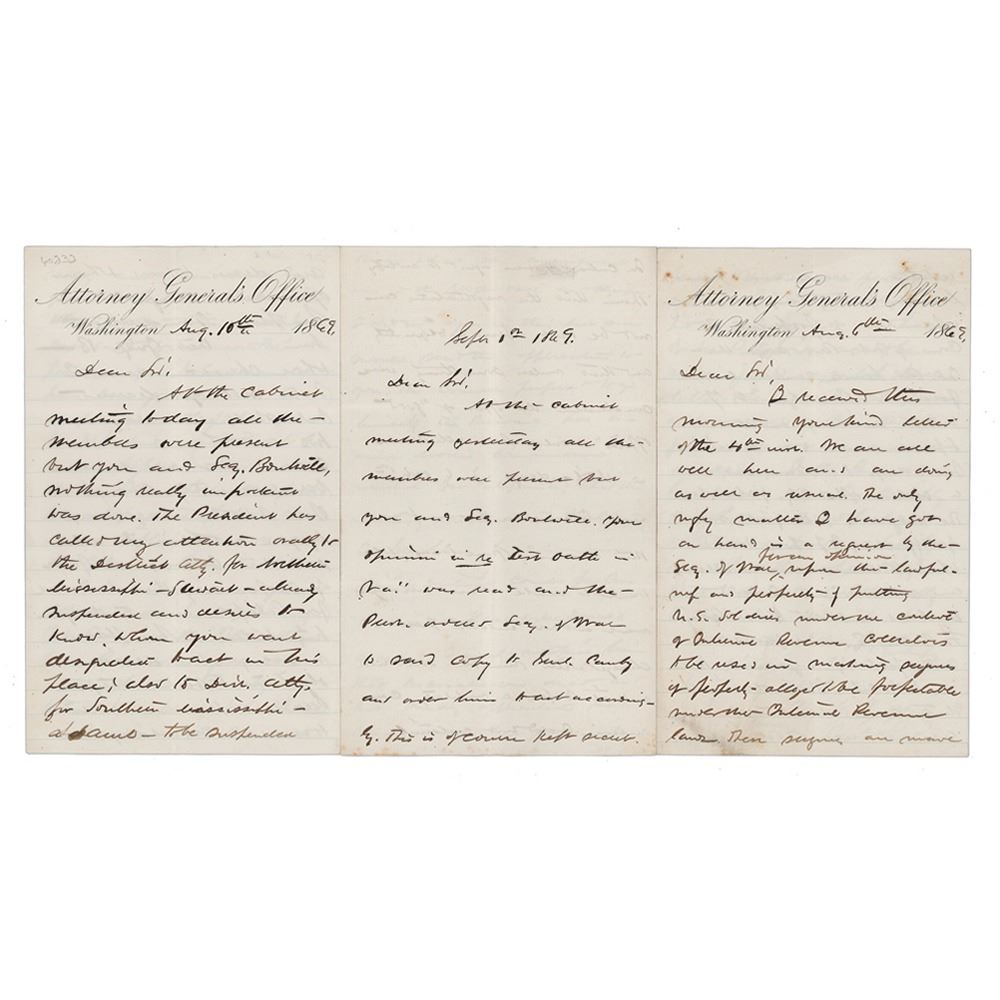 Attorney General's Office
Washington Aug. 10th 1869.
Dear Sir,
At the Cabinet
meeting today all the
members were present
but you and Secy. Boutwell,
nothing really important
was done. The President has
called my attention orally to
the District Atty. for Northern
Mississippi - Stewart - already
suspended and desires to
know whom you want
designated to act in his
place; also to Dist. Atty.
for Southern Mississippi -
Adams - to be suspended
Sept 1st 1869.
Dear Sir,
At the cabinet
meeting yesterday all the
members were present but
you and Secy. Boutwell. Your
opinion in re test oath in
Va. was read and the
Prest. ordered Secy. of War
to send copy to Genl. Canby
and order him to act according-
ly. This is of course kept secret.
Attorney General's Office
Washington Aug. 6th 1869.
Dear Sir,
I received this
morning your kind letter
of the 4th inst. We are all
well here and are doing
as well as usual. The only
ugly matter I have got
on hand is a request by the
Secy. of War, for an opinion upon the lawful-
ness and propriety of putting
U.S. Soldiers under the control
of Internal Revenue Collectors
to be used in making seizures
of property alleged to be forfeitable
under the Internal Revenue
laws these seizures are made